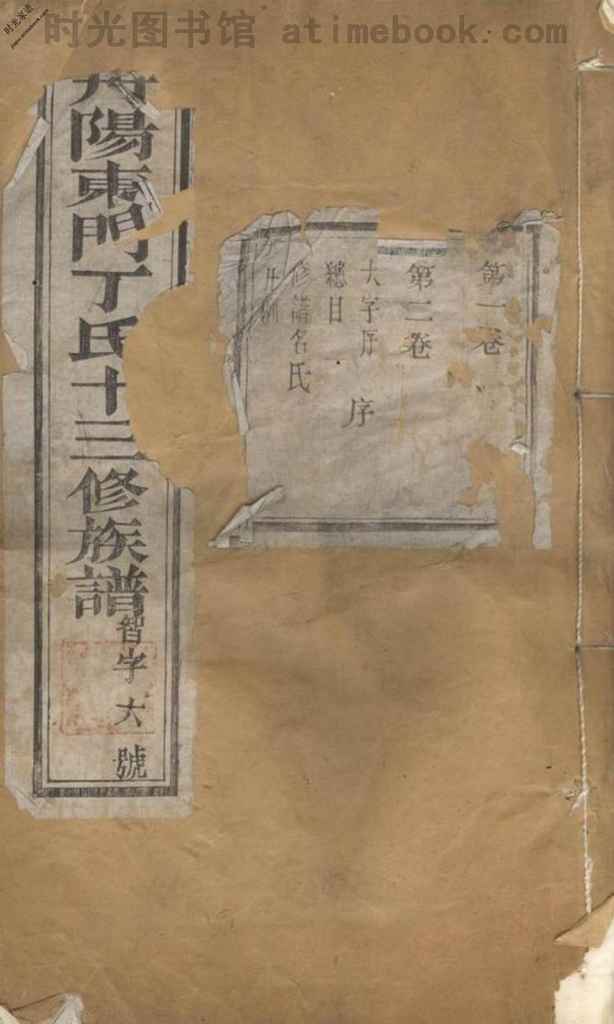 时光图书馆 atimebook.com
丹陽東門丁氏十三修族譜
智字 六 號
第一卷
第二卷
大字序 序
總目
修譜名氏